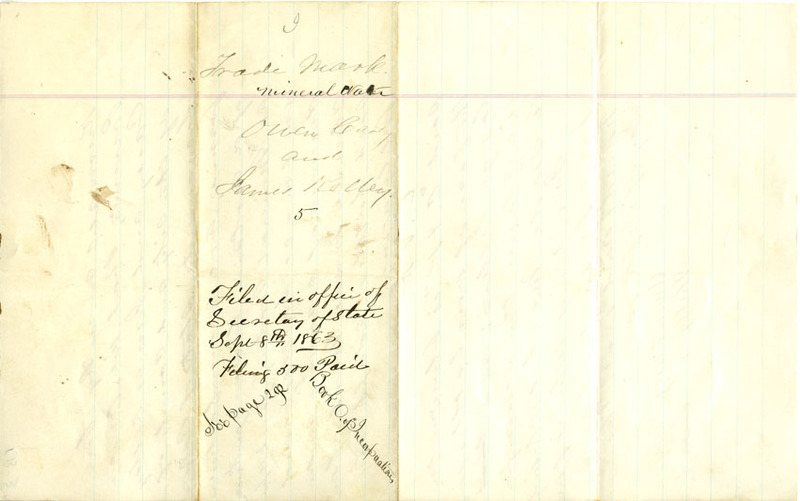 Trade Mark.
Mineral Water
Owen Casey
and
James Kelley.
5
Filed in office of
Secretary of State
Sept 8th 1863
Filing 5 00 Paid
See page 292
Book A of Incorporations